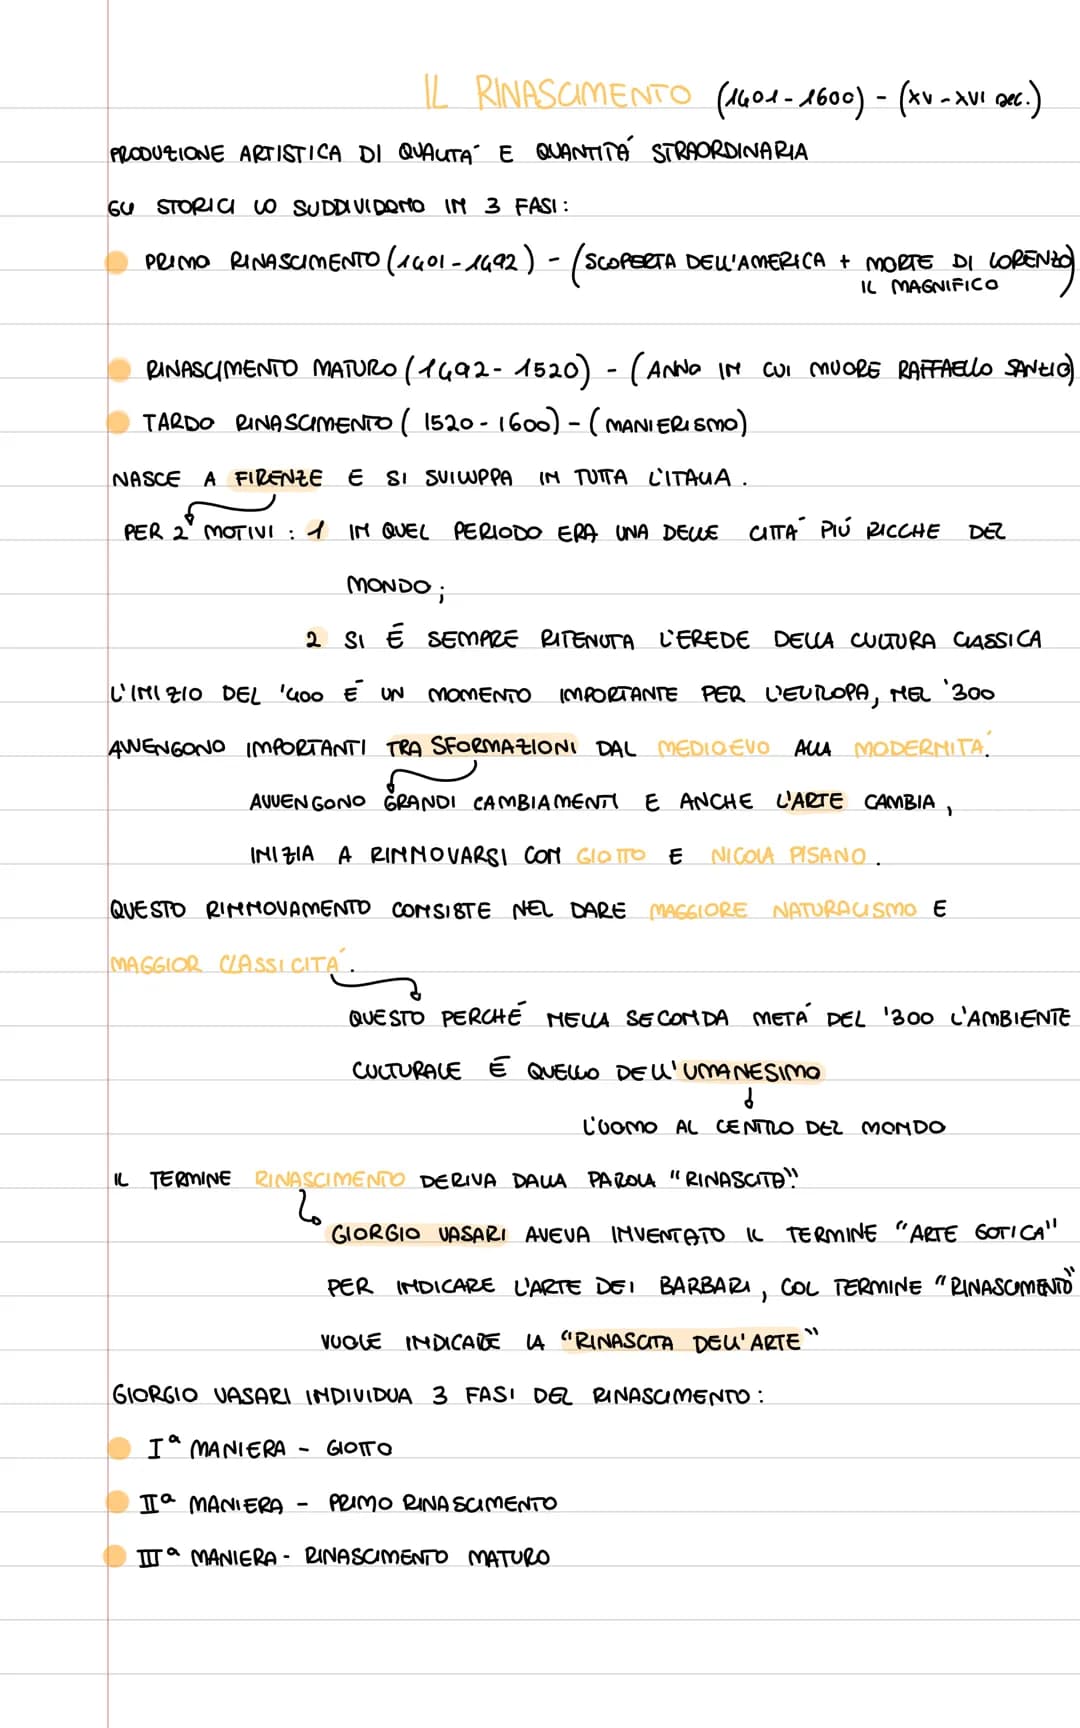 IL RINASCIMENTO (1401-1600) - (XV-XVI sec.)
PRODUZIONE ARTISTICA DI QUALITÀ E QUANTITÀ STRAORDINARIA
GLI STORICI LO SUDDIVIDONO IN 3 FASI:
PRIMO RINASCIMENTO (1401-1492) - (SCOPERTA DELL'AMERICA + MORTE DI LORENZO
IL MAGNIFICO)
RINASCIMENTO MATURO (1492-1520) - (ANNO IN CUI MUORE RAFFAELLO SANZIO)
TARDO RINASCIMENTO (1520-1600) - (MANIERISMO)
NASCE A FIRENZE E SI SVILUPPA IN TUTTA L'ITALIA.
PER 2 MOTIVI: 1 IN QUEL PERIODO ERA UNA DELLE CITTÀ PIÚ RICCHE DEL
MONDO;
2 SI É SEMPRE RITENUTA L'EREDE DELLA CULTURA CLASSICA
L'INIZIO DEL '400 É UN MOMENTO IMPORTANTE PER L'EUROPA, NEL '300
AVVENGONO IMPORTANTI TRASFORMAZIONI DAL MEDIOEVO ALLA MODERNITÀ.
AVVENGONO GRANDI CAMBIAMENTI E ANCHE L'ARTE CAMBIA,
INIZIA A RINNOVARSI CON GIOTTO E NICOLA PISANO.
QUESTO RINNOVAMENTO CONSISTE NEL DARE MAGGIORE NATURALISMO E
MAGGIOR CLASSICITÀ.
QUESTO PERCHÉ NELLA SECONDA METÀ DEL '300 L'AMBIENTE
CULTURALE É QUELLO DELL'UMANESIMO
L'UOMO AL CENTRO DEL MONDO
IL TERMINE RINASCIMENTO DERIVA DALLA PAROLA "RINASCITA"
GIORGIO VASARI AVEVA INVENTATO IL TERMINE "ARTE GOTICA"
PER INDICARE L'ARTE DEI BARBARI, COL TERMINE "RINASCIMENTO"
VUOLE INDICARE LA "RINASCITA DELL'ARTE"
GIORGIO VASARI INDIVIDUA 3 FASI DEL RINASCIMENTO:
Iª MANIERA - GIOTTO
IIª MANIERA - PRIMO RINASCIMENTO
IIIª MANIERA - RINASCIMENTO MATURO